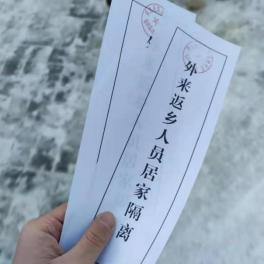 外来返乡人员居家隔离